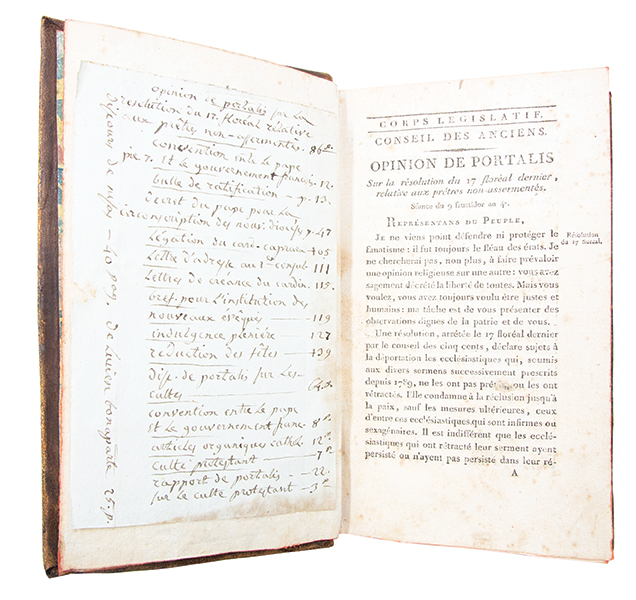 opinion de portalis sur la
resolution du 17. floréal relative
aux prêtres non-assermentés. 86 p.
convention entre le pape
pie 7. Et le gouvernement français. 12.
bulle de ratification — p. 13.
décret du pape pour la
circonscription des nouv. diocèses p. 47
Légation du card. caprara 105
Lettre d'adresse au 1er consul 111
Lettres de creance du cardin. 115.
bref pour l'institution des
nouveaux évêques — 119
indulgence pléniére 127
réduction des fêtes — 139
disc. de portalis sur Les
cultes — 64 p.
convention entre le pape
Et le gouvernement franc. 8 p.
articles organiques cathol. 12 p.
culte protestant — 7 p.
rapport de portalis — 22.
sur le culte protestant — 3 p.
discours de — 40 pag. de Lucien bonaparte 25. p.
CORPS LÉGISLATIF.
CONSEIL DES ANCIENS.
OPINION DE PORTALIS
Sur la résolution du 17 floréal dernier,
relative aux prêtres non-assermentés.
Séance du 9 fructidor an 4e.
REPRÉSENTANS DU PEUPLE,
Je ne viens point défendre ni protéger le
fanatisme : il fut toujours le fléau des états. Je
ne chercherai pas, non plus, à faire prévaloir
une opinion religieuse sur une autre : vous avez
sagement décrété la liberté de toutes. Mais vous
voulez, vous avez toujours voulu être justes et
humains : ma tâche est de vous présenter des
observations dignes de la patrie et de vous.
Une résolution, arrêtée le 17 floréal dernier
par le conseil des cinq cents, déclare sujets à
la déportation les ecclésiastiques qui, soumis
aux divers sermens successivement prescrits
depuis 1789, ne les ont pas prê ou les ont
rétractés. Elle condamne à la réclusion jusqu'à
la paix, sauf les mesures ultérieures, ceux
d'entre ces ecclésiastiques qui sont infirmes ou
sexagénaires. Il est indifférent que les ecclé-
siastiques qui ont rétracté leur serment ayent
persisté ou n'ayent pas persisté dans leur ré-
A
Résolution
du 17 floréal.